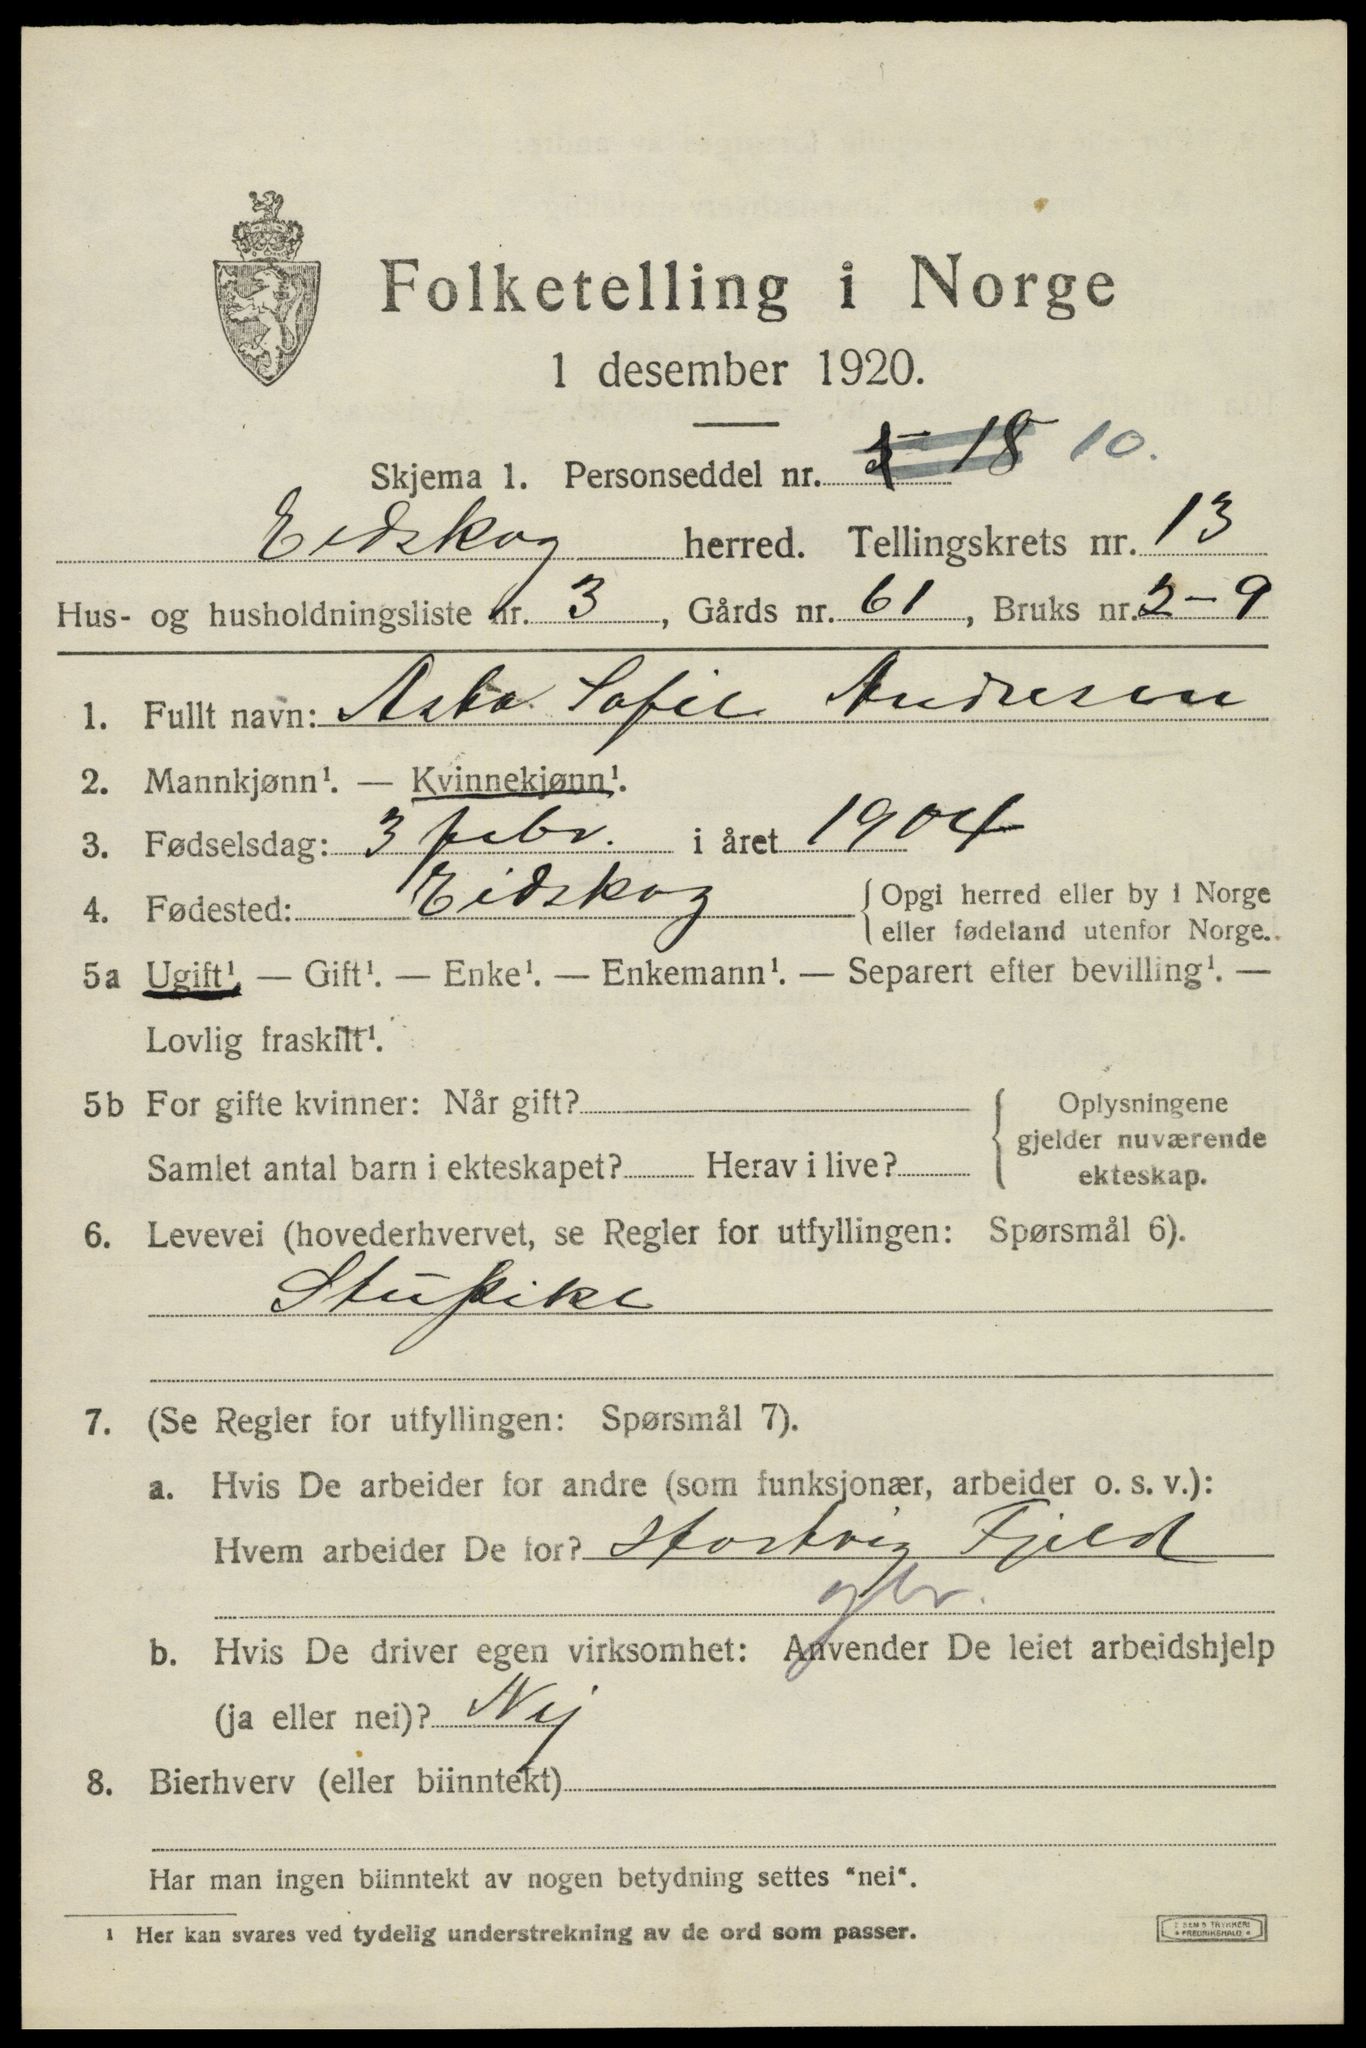 Folketelling i Norge
1 desember 1920.
Skjema 1. Personseddel nr. 18 10.
Eidskog herred. Tellingskrets nr. 13
Hus- og husholdningsliste nr. 3, Gårds nr. 61, Bruks nr. 2-9
1. Fullt navn: Asta Sofie Andresen
2. Mannkjønn¹. — Kvinnekjønn¹.
3. Fødselsdag: 3 febr. i året 1904
4. Fødested: Eidskog { Opgi herred eller by i Norge
eller fødeland utenfor Norge.
5a Ugift¹. — Gift¹. — Enke¹. — Enkemann¹. — Separert efter bevilling¹. —
Lovlig fraskilt¹.
5b For gifte kvinner: Når gift?
Samlet antal barn i ekteskapet? Herav i live?
{ Oplysningene
gjelder nuværende
ekteskap.
6. Levevei (hovederhvervet, se Regler for utfyllingen: Spørsmål 6).
Stupike
7. (Se Regler for utfyllingen: Spørsmål 7).
a. Hvis De arbeider for andre (som funksjonær, arbeider o. s. v.):
Hvem arbeider De for? Hartvig Fjeld
gbr.
b. Hvis De driver egen virksomhet: Anvender De leiet arbeidshjelp
(ja eller nei)? Nej
8. Bierhverv (eller biinntekt)
Har man ingen biinntekt av nogen betydning settes "nei".
¹ Her kan svares ved tydelig understrekning av de ord som passer.